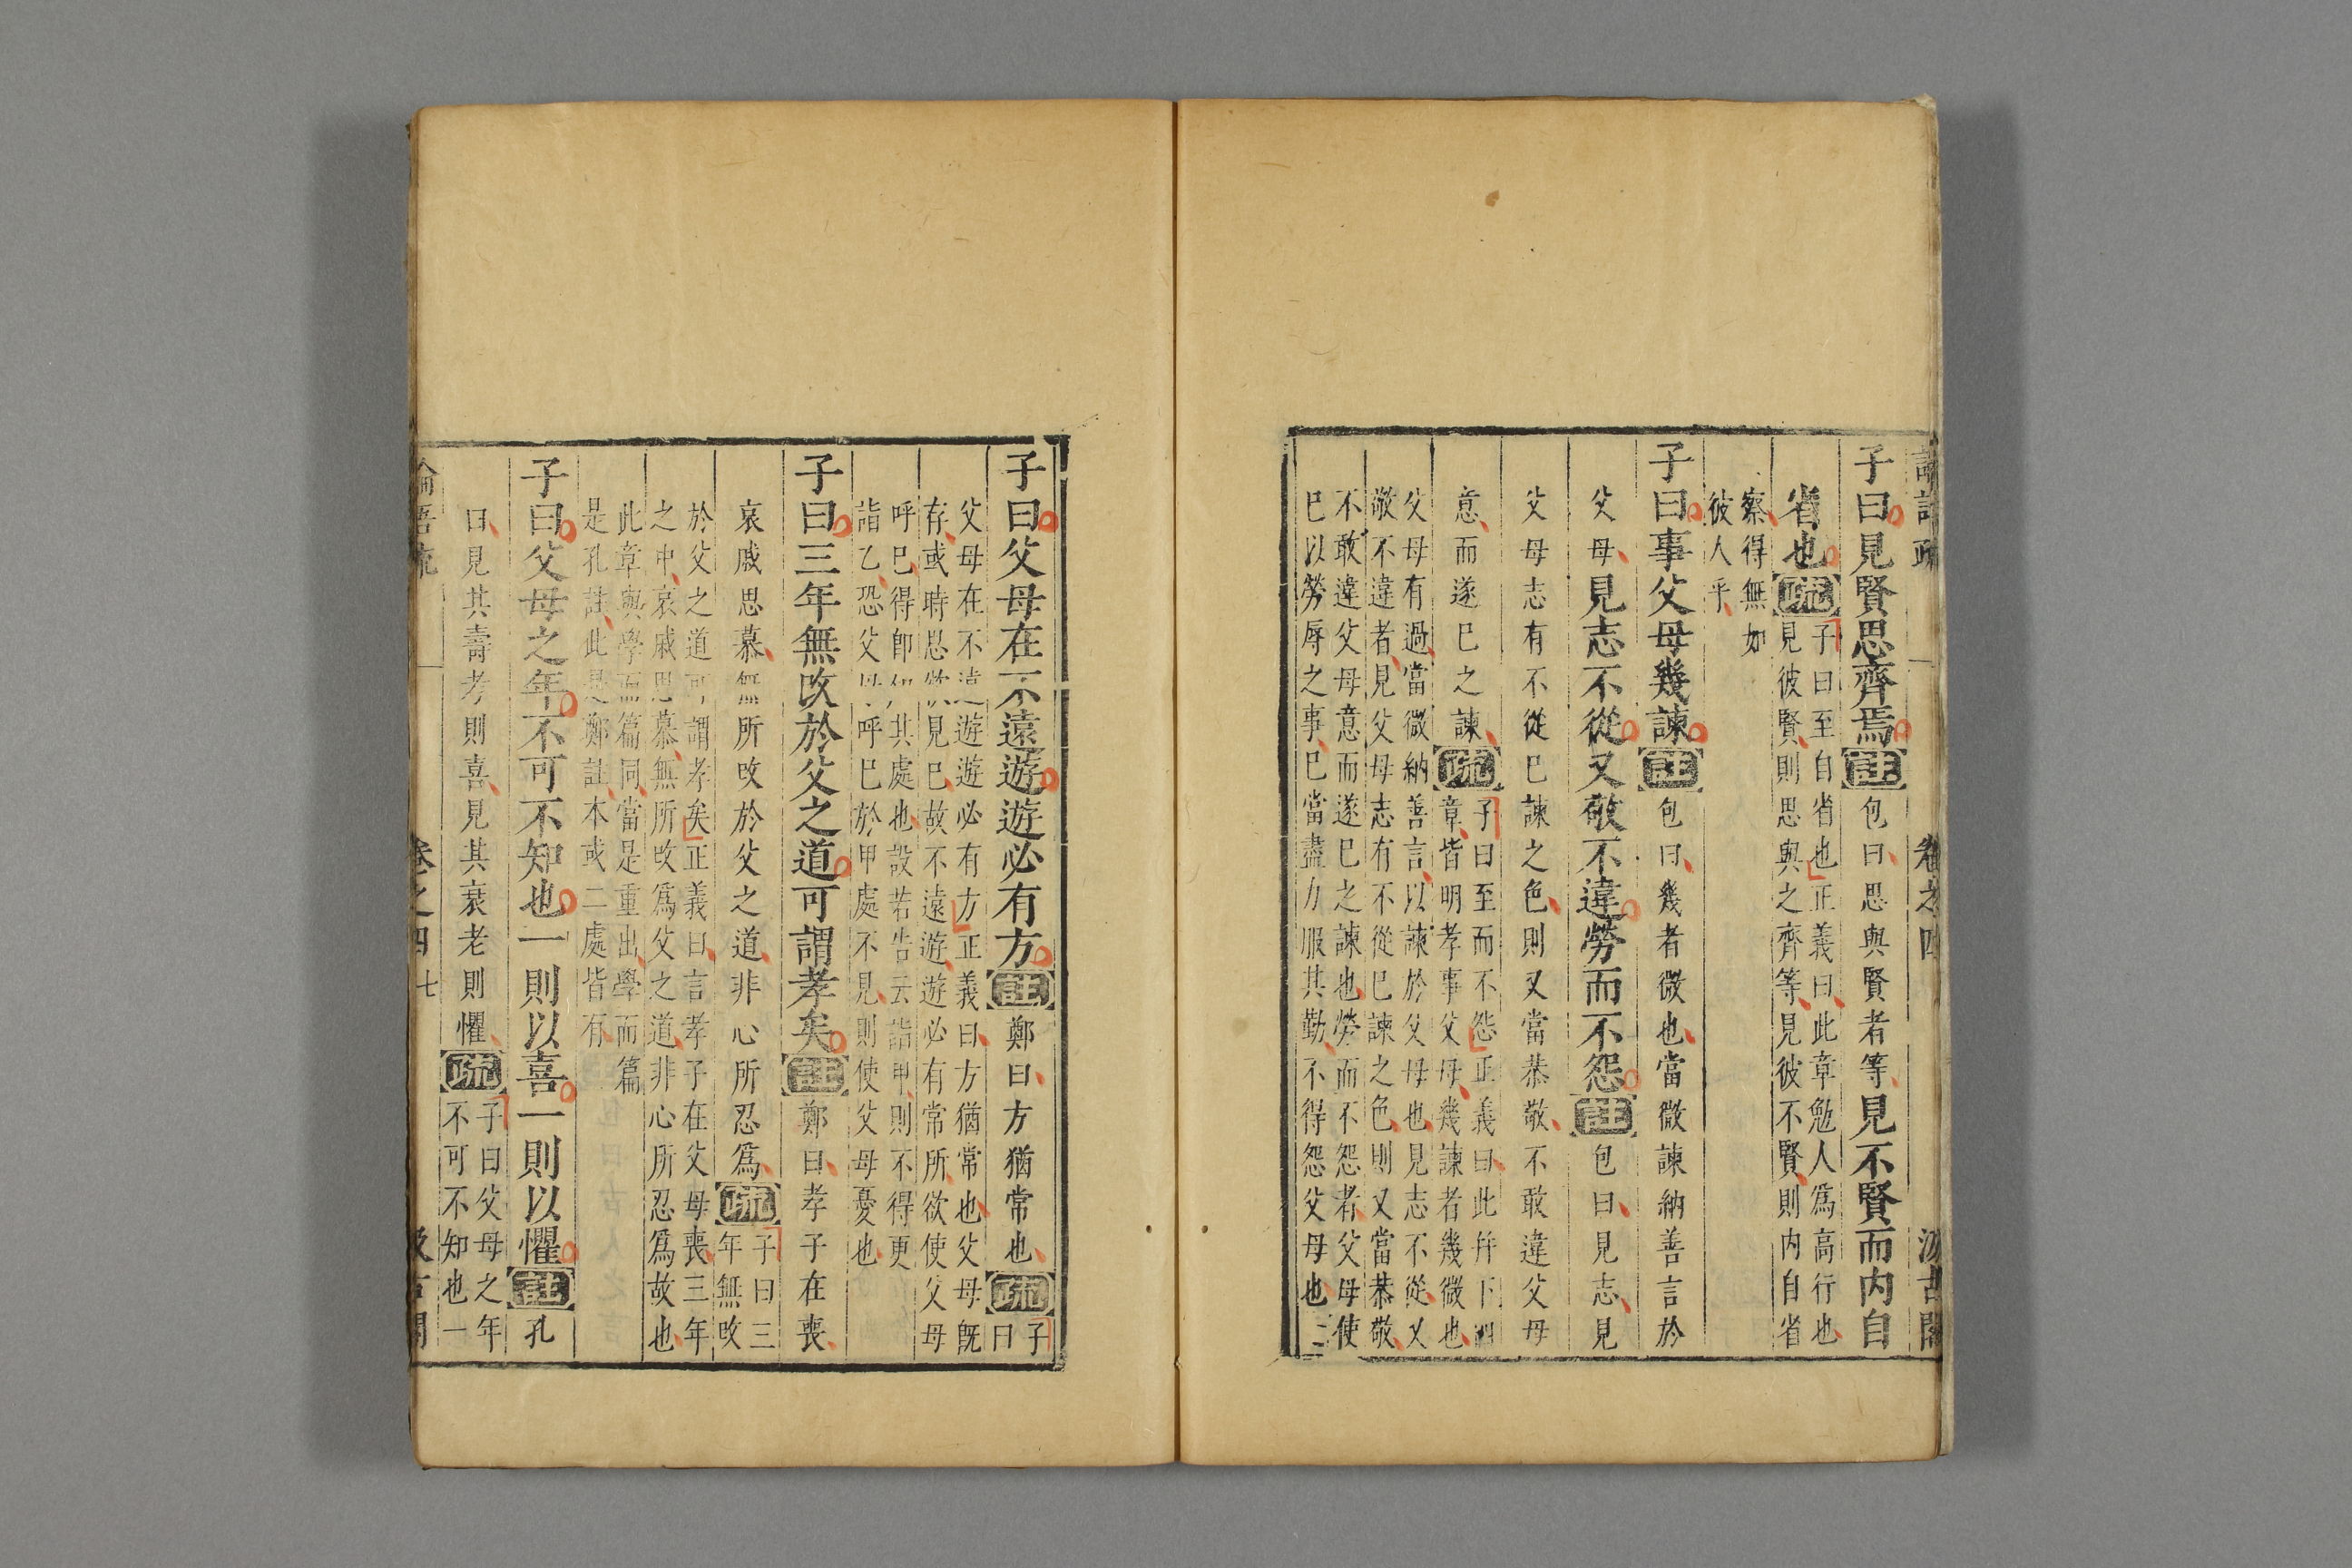 子曰見賢思齊焉註包曰思與賢者等見不賢而內自
省也疏子曰至自省也正義曰此章勉人爲高行也
見彼賢則思與之齊等見彼不賢則內自省
察得無如
彼人乎
子曰事父母幾諫註包曰幾者微也當微諫納善言於
父母見志不從又敬不違勞而不怨註包曰見志見
父母志有不從已諫之色則又當恭敬不敢違父母
意而遂已之諫疏子曰至而不怨正義曰此幷下四
章皆明孝事父母幾諫者幾微也
父母有過當微納善言以諫於父母也見志不從又
敬不違者見父母志有不從已諫之色則又當恭敬
不敢違父母意而遂已之諫也勞而不怨者父母使
已以勞辱之事已當盡力服其勤不得怨父母也
子曰父母在不遠遊遊必有方註鄭曰方猶常也疏子
曰
父母在不遠遊遊必有方正義曰方猶常也父母旣
存或時思欲見已故不遠遊遊必有常所欲使父母
呼已得卽知其處也設若告云詣甲則不得更
詣乙恐父母呼已於甲處不見則使父母憂也
子曰三年無改於父之道可謂孝矣註鄭曰孝子在喪
哀戚思慕無所改於父之道非心所忍爲疏子曰三
年無改
於父之道可謂孝矣正義曰言孝子在父母喪三年
之中哀戚思慕無所改爲父之道非心所忍爲故也
此章與學而篇同當是重出學而篇
是孔註此是鄭註本或二處皆有
子曰父母之年不可不知也一則以喜一則以懼註孔
曰見其壽考則喜見其衰老則懼疏子曰父母之年
不可不知也一
卷之四 七